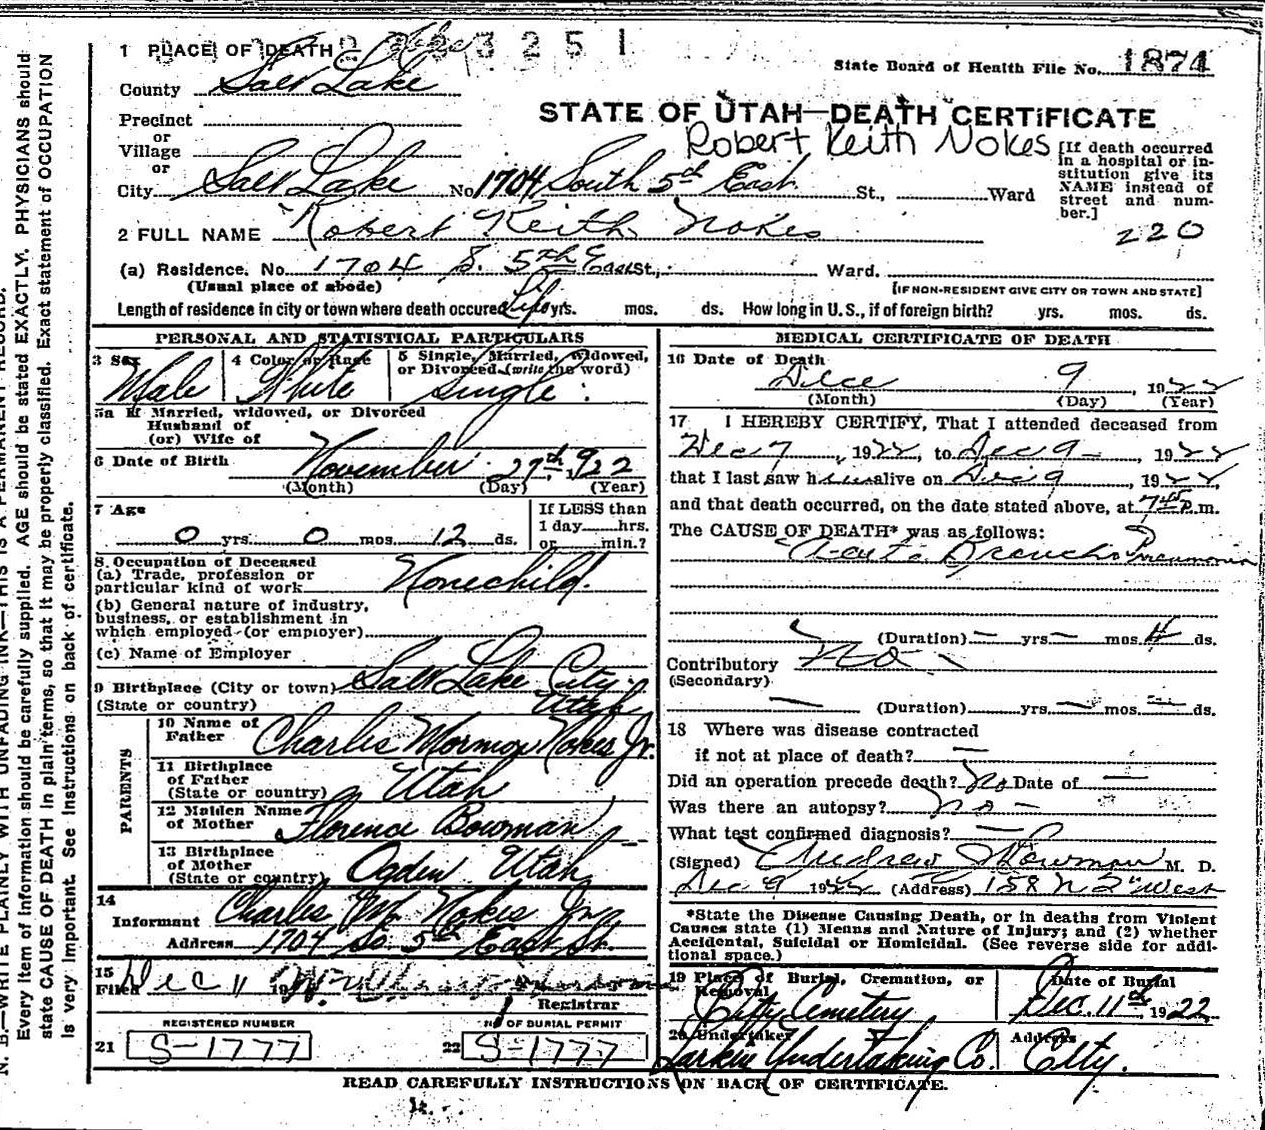 1 PLACE OF DEATH 3 2 5 1
State Board of Health File No. 1874
County Salt Lake
STATE OF UTAH—DEATH CERTIFICATE
Precinct
or
Village
or
Robert Keith Nokes
City Salt Lake No. 1704 South 5th East St., Ward
[If death occurred in a hospital or institution give its NAME instead of street and number.]
220
2 FULL NAME Robert Keith Nokes
(a) Residence. No. 1704 S. 5th East St., Ward.
(Usual place of abode)
[IF NON-RESIDENT GIVE CITY OR TOWN AND STATE]
Length of residence in city or town where death occured Life yrs. mos. ds. How long in U. S., if of foreign birth? yrs. mos. ds.
PERSONAL AND STATISTICAL PARTICULARS
3 Sex Male
4 Color or Race White
5 Single, Married, Widowed, or Divorced (write the word) Single
5a If Married, widowed, or Divorced
Husband of
(or) Wife of
6 Date of Birth November 27th, 1922
(Month) (Day) (Year)
7 Age 0 yrs. 0 mos. 12 ds.
If LESS than
1 day hrs.
or min.?
8. Occupation of Deceased
(a) Trade, profession or
particular kind of work None child.
(b) General nature of industry,
business, or establishment in
which employed (or employer)
(c) Name of Employer
9 Birthplace (City or town) Salt Lake City
(State or country) Utah
PARENTS
10 Name of
Father Charles Mormon Nokes Jr.
11 Birthplace
of Father
(State or country) Utah
12 Maiden Name
of Mother Florence Bowman
13 Birthplace
of Mother
(State or country) Ogden Utah
14
Informant Charles M. Nokes Jr.
Address 1704 So. 5th East St.
15
Filed Dec 11 19
Registrar
REGISTERED NUMBER
21 S-1777
NO OF BURIAL PERMIT
22 S-1777
MEDICAL CERTIFICATE OF DEATH
16 Date of Death Dec 9, 1922
(Month) (Day) (Year)
17 I HEREBY CERTIFY, That I attended deceased from
Dec 7, 1922, to Dec 9, 1922
that I last saw him alive on Dec 9, 1922
and that death occurred, on the date stated above, at 7 45 P.m.
The CAUSE OF DEATH* was as follows:
Acute Broncho Pneumonia
(Duration) — yrs — mos 4 ds.
Contributory No
(Secondary)
(Duration) — yrs — mos — ds.
18 Where was disease contracted
if not at place of death? —
Did an operation precede death? No Date of —
Was there an autopsy? no —
What test confirmed diagnosis? —
(Signed) Andrew Bowman M. D.
Dec 9 1922 (Address) 158 N 2nd West
*State the Disease Causing Death, or in deaths from Violent
Causes state (1) Means and Nature of Injury; and (2) whether
Accidental, Suicidal or Homicidal. (See reverse side for addi-
tional space.)
19 Place of Burial, Cremation, or
Removal City Cemetery
Date of Burial
Dec. 11th, 1922
20 Undertaker Larkin Undertaking Co.
Address City.
READ CAREFULLY INSTRUCTIONS ON BACK OF CERTIFICATE.
N. B.—WRITE PLAINLY WITH UNFADING INK—THIS IS A PERMANENT RECORD.
Every item of information should be carefully supplied. AGE should be stated EXACTLY. PHYSICIANS should
state CAUSE OF DEATH in plain terms, so that it may be properly classified. Exact statement of OCCUPATION
is very important. See instructions on back of certificate.